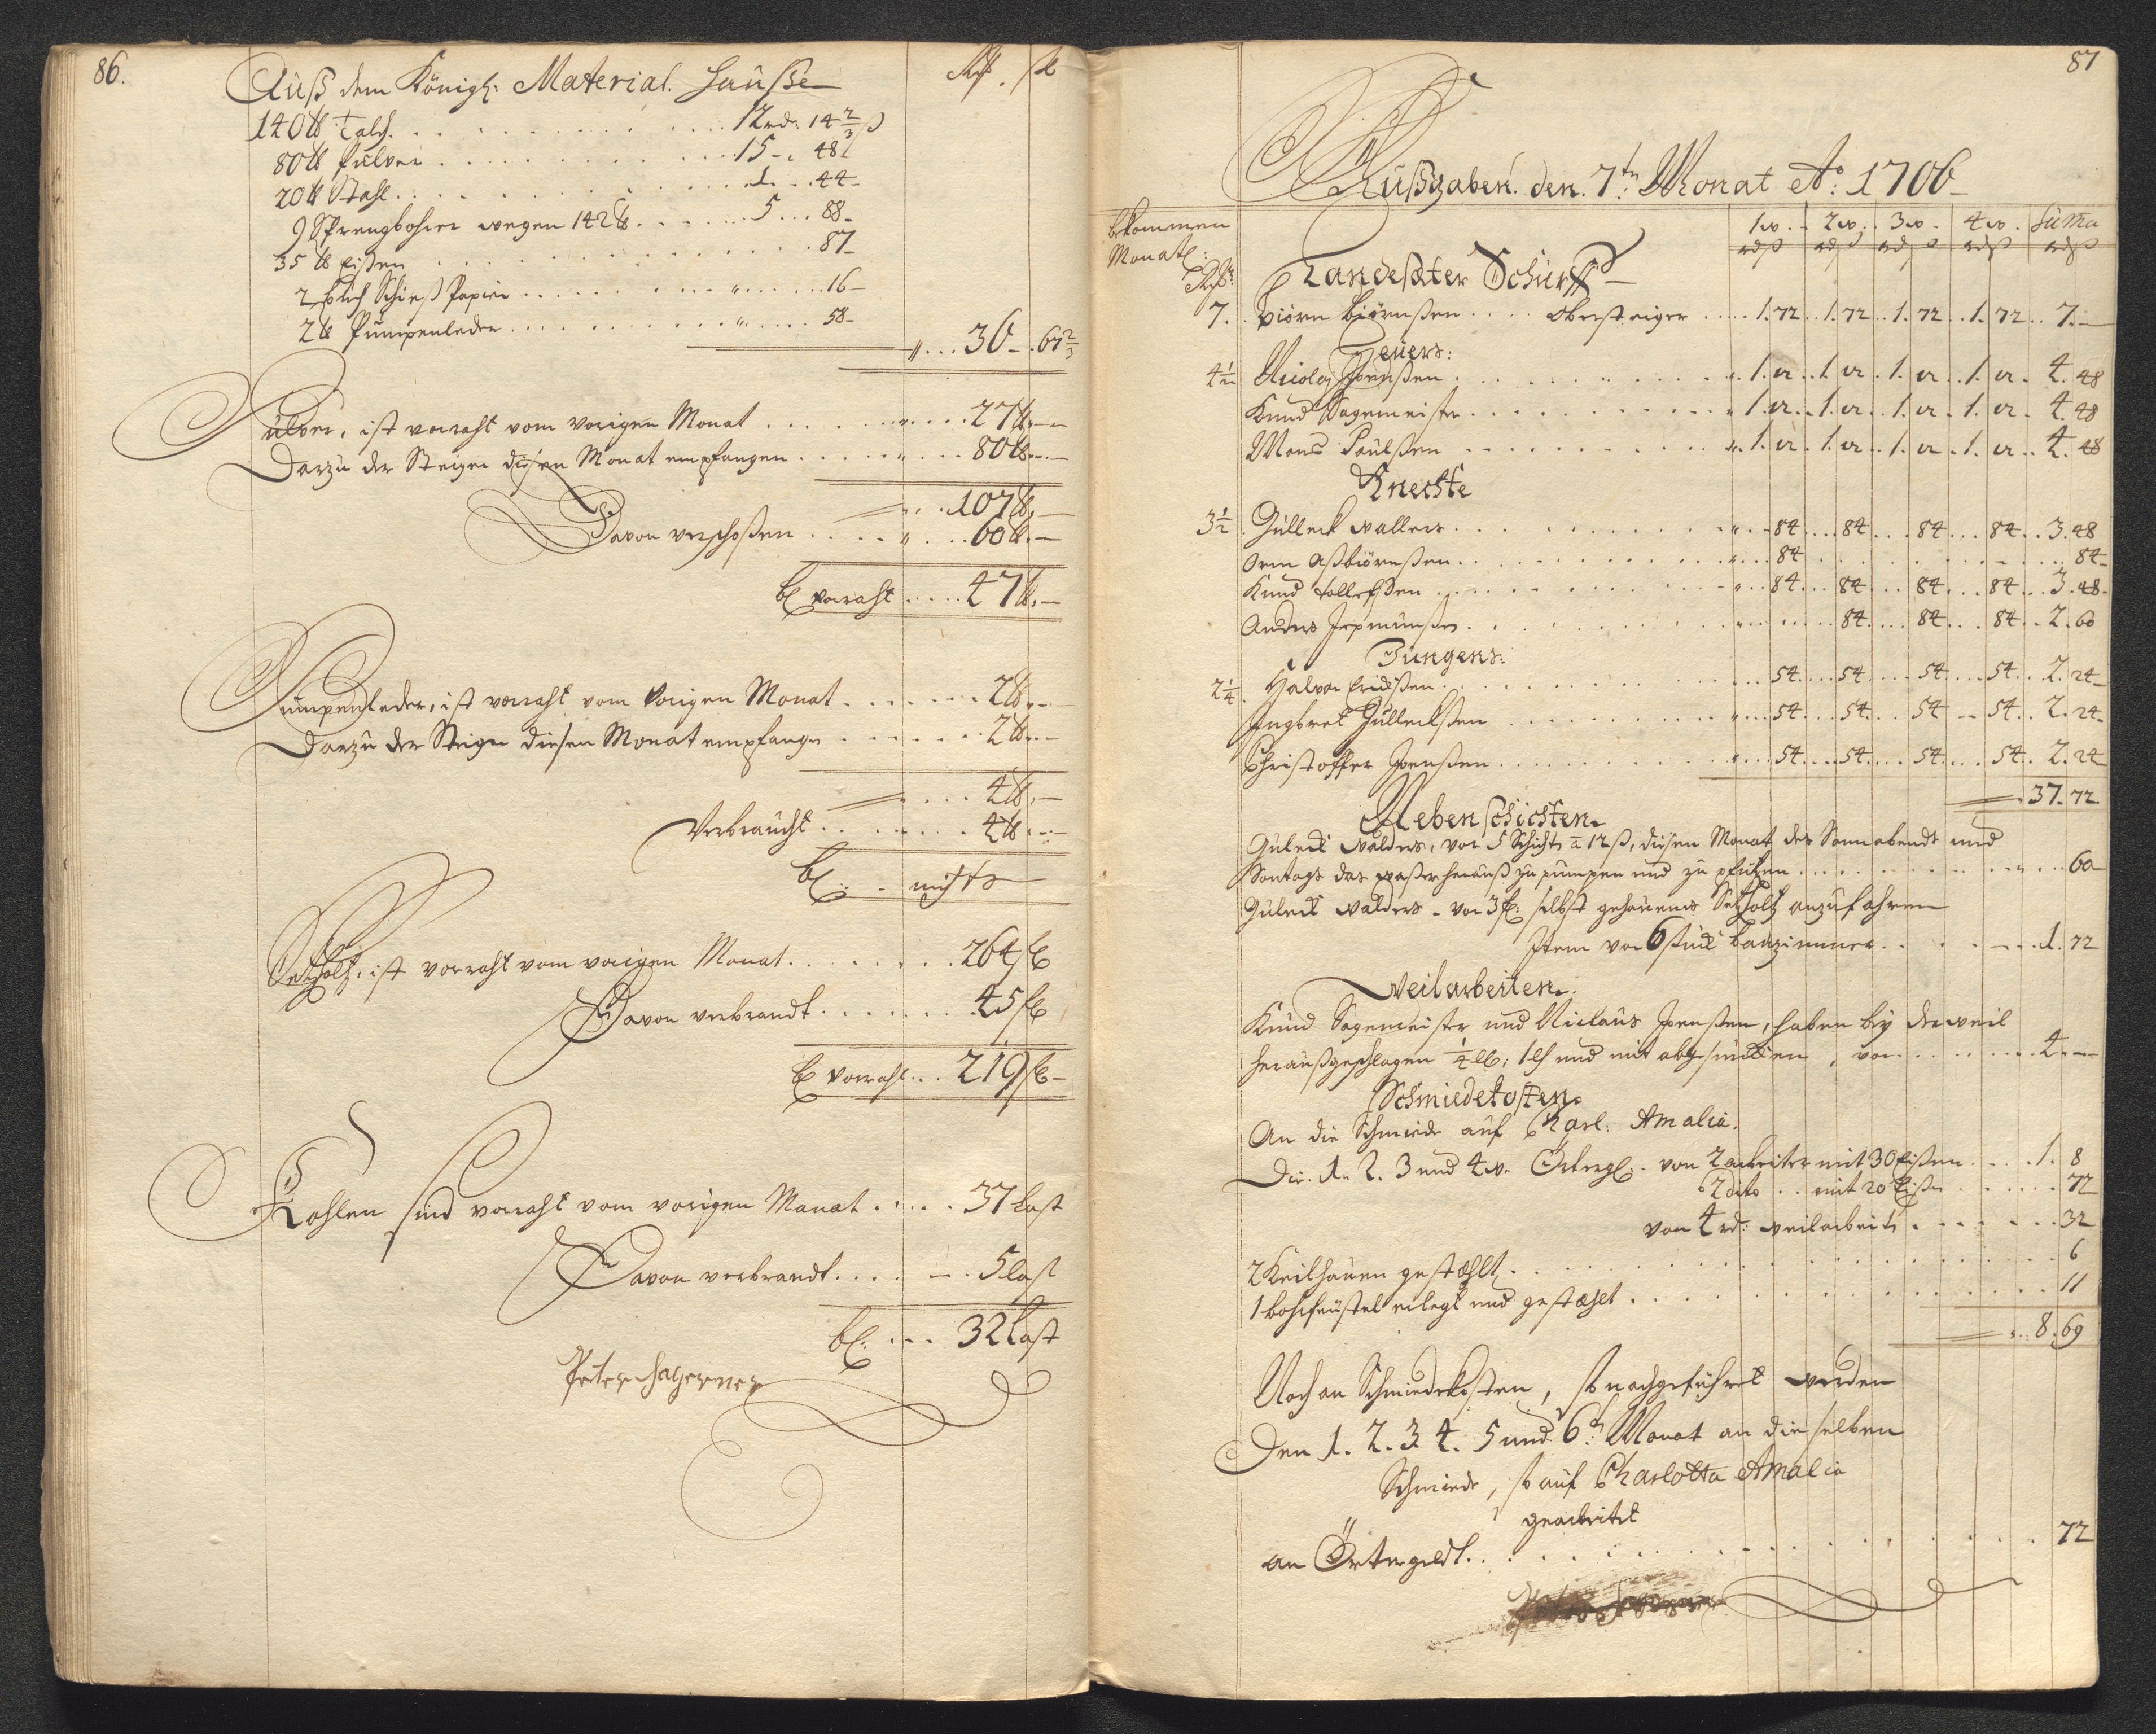 86.
Auß dem Königl: Material. Hauße
140 ℔ Talch. . . . 12 rd: 14 2/3 ß
80 ℔ Pulver . . . 15 - . 48
20 ℔ Stahl . . . 1 . . 44 -
9 Sprengbohrer wegen 142 ℔ . . . 5 . . . 88 -
35 ℔ Eißen . . . 87 -
2 buch Schieß Papier . . . " . . . 16 -
2 ℔ Pumpenleder . . . " . . . 58 -
" . . . 36 - . 67 2/3
Pulver, ist vorraht vom vorigen Monat . . . 27 ℔ . -
Darzu der Steiger diesen Monat empfangen . . . 80 ℔ . -
. . . 107 ℔ . -
Davon verschoßen . . . " . . . 60 ℔ . -
bl vorraht . . . . 47 ℔ . -
Pumpenleder, ist vorraht vom vorigen Monat . . . 2 ℔ . -
Darzu der Steiger diesen Monat empfangen . . . 2 ℔ . -
. . . 4 ℔ . -
Verbraucht . . . 4 ℔ . -
bl: - nichts
Setzholtz, ist vorraht vom vorigen Monat . . . 264 fl
Davon verbrandt . . . 45 fl
bl vorraht . . . 219 fl -
Kohlen sind vorraht vom vorigen Monat . . . 37 Last
Davon verbrandt . . . 5 last
bl: . . . 32 Last
87
Außgaben den 7tn Monat Ao: 1706
bekommen
Monatl:
1 w. 2 w. 3 w. 4 w. Suma
rdß rdß rdß rdß rdß
Landeßater Schurff
7. Biörn Biörnßen . . . Obersteiger . . . 1. 72 . . 1. 72 . . 1. 72 . . 1. 72 . . 7. -
Heuers:
4 1/2 Nicolaj Joenßen . . . 1. 12 . . 1. 12 . . 1. 12 . . 1. 12 . 4. 48
Knud Sagemeister . . . 1. 12 . . 1. 12 . . 1. 12 . . 1. 12 . 4. 48
Mons Paulßen . . . 1. 12 . . 1. 12 . . 1. 12 . . 1. 12 . . 4. 48
Knechte
3 1/2 . Gulleck Wallers . . . 84 . . . 84 . . . 84 . . . 84 . . 3. 48
Orm Aßbiörnßen . . . 84 . . . 84 -
Knud Tollefßen . . . 84 . . . 84 . . . 84 . . . 84 . . . 3. 48 -
Anders . . . 84 . . . 84 . . . 84 . . 2. 60
Jungens:
2 1/4 . Halvor Erickßen . . . 54 . . . 54 . . . 54 . . . 54 . . 2. 24 -
Ingbret Gulleckßen . . . 54 . . . 54 . . . 54 . . 54 . . 2. 24 -
Christoffer Joenßen . . . 54 . . . 54 . . . 54 . . . 54 . . 2. 24
37. 72
Nebenschichten
Guleck Walders, vor 5 Schicht a 12 ß, diesen Monat des Sonnabends und
Sontags das waßer herauß zu pumpen und zu pfützen . . . 60 -
Guleck Walders - vor 3 fl: selbst gehauenes Setzholtz anzufahren
Item vor 6 stück banzimmer . . . 1. 72
Weilarbeiten
Knud Sagemeister und Niclaus Joenßen, haben bey der weil
heraußgeschlagen 1/4 Lb; und mit , vor . . . 4. -
Schmiedekosten
An die Schmiede auf Charl: Amalia.
Die. 1. 2. 3 und 4 w. Örtergl: von 2 arbeiter mit 30 Eißen . . . 1. 8
2 dito . . mit 20 Eißn . . . 72
von 4 rd: weilarbeit . . . 32
2 Keilhauen gestæhlt . . . 6
1 bohrfeustel erlegt und gestæhlt . . . 11
" . . 8. 69
Noch an Schmiedekosten, so nachgeführet werden
Den 1. 2. 3. 4. 5 und 6tn Monat an die selben
Schmiede, so auf Charlotta Amalia
gearbeitet
an Örtergeldt . . . 72